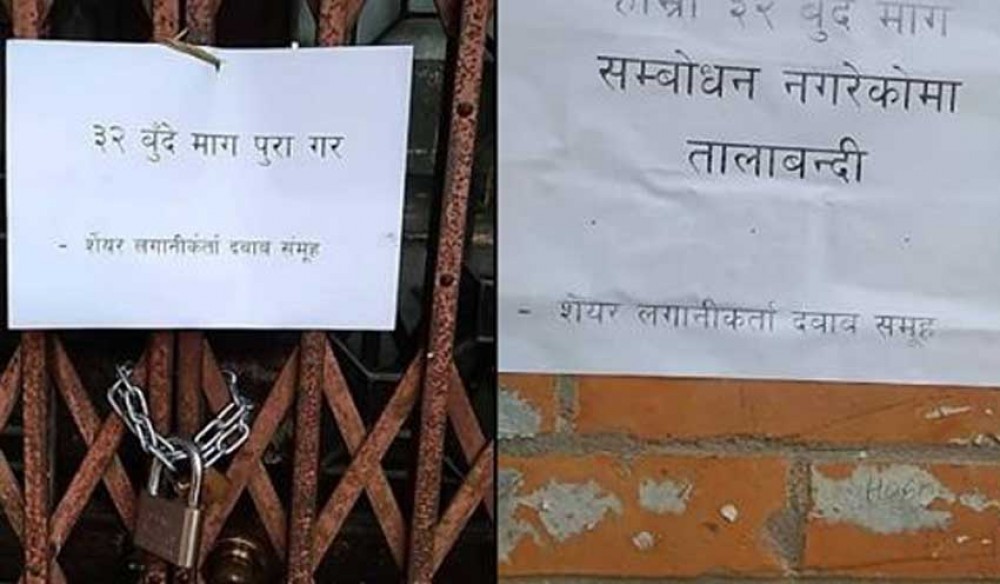 ३२ बुँदे माग पुरा गर
- शेयर लगानीकर्ता दवाव संमूह
हाम्रो ३२ बुँदे माग
सम्बोधन नगरेकोमा
तालाबन्दी
- शेयर लगानीकर्ता दवाव समूह